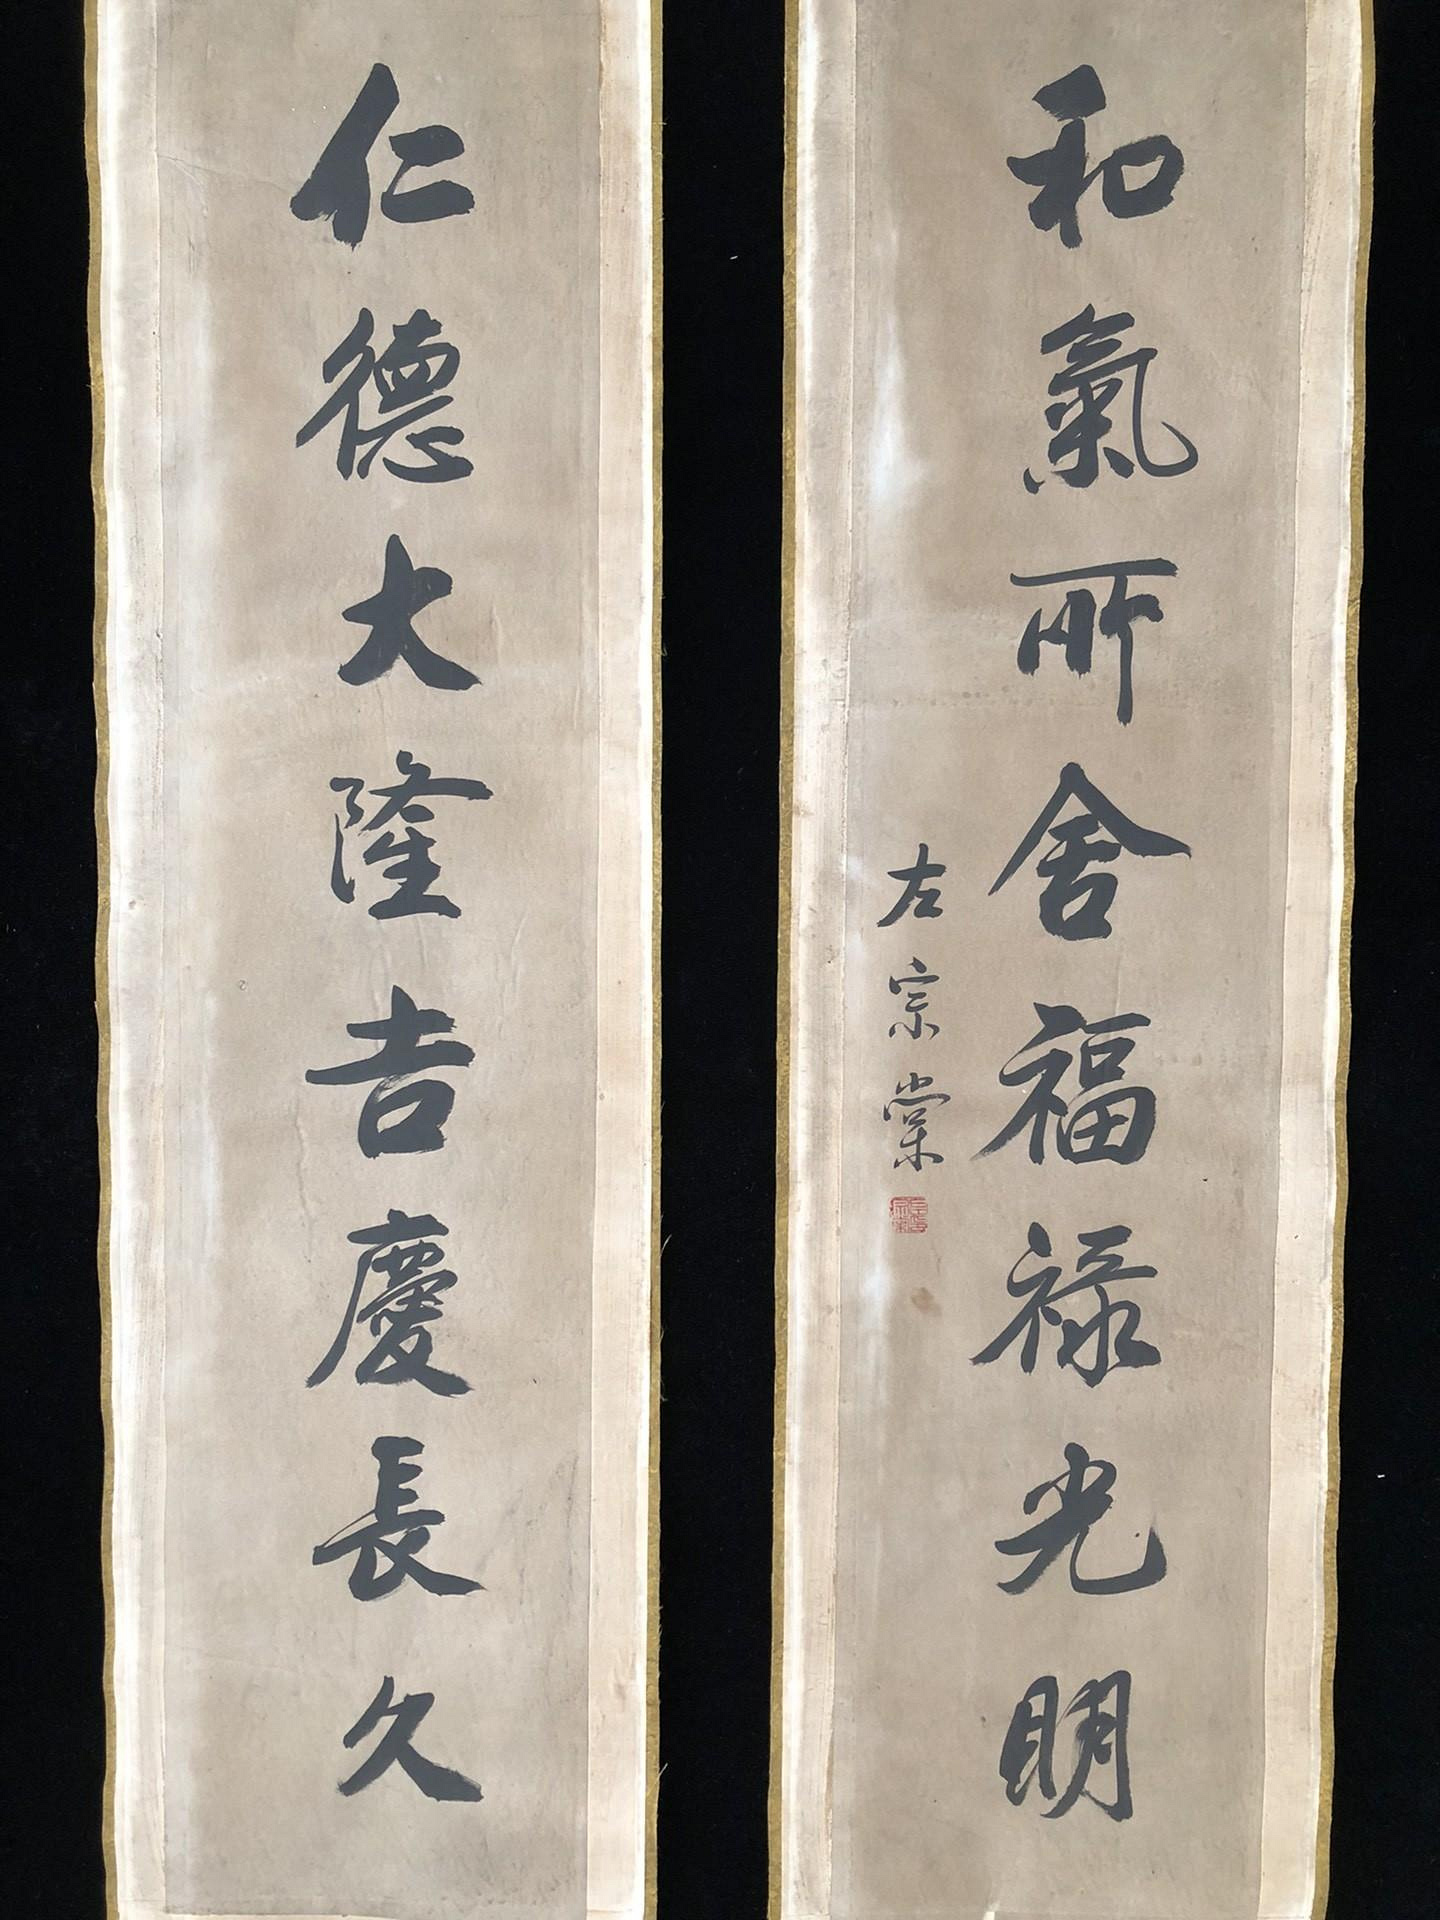 和氣所舍福祿光明
左宗棠
仁德大隆吉慶長久